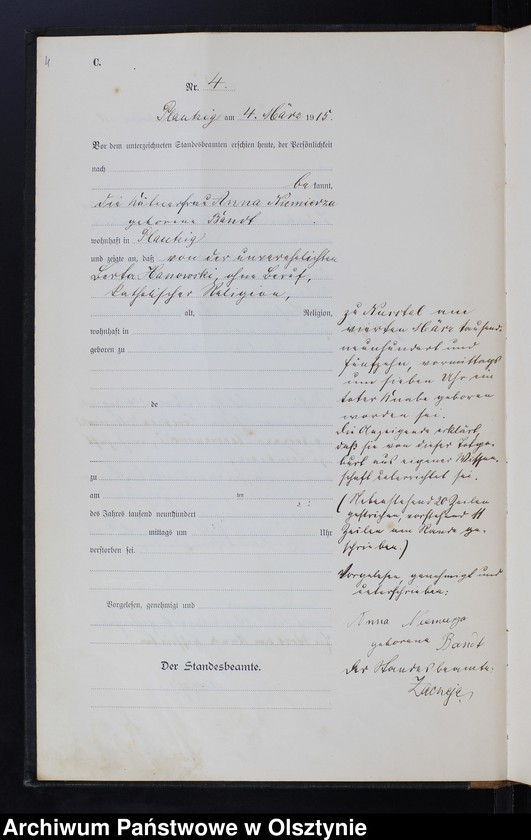 4
C.
Nr. 4.
Plautzig am 4. März 1915.
Vor dem unterzeichneten Standesbeamten erschien heute, der Persönlichkeit
nach
be kannt,
die Kätnerfrau Anna Niemierza
geborene Bandt
wohnhaft in Plautzig
und zeigte an, daß von der unverehelichten
Berta Hanowski, ohne Beruf,
katholischer Religion,
alt, Religion,
wohnhaft in
geboren zu
de
zu
am ten
des Jahres tausend neunhundert
mittags um Uhr
verstorben sei.
Vorgelesen, genehmigt und
Der Standesbeamte.
zu am
vierten März tausend
neunhundert und
fünfzehn, vormittags
um sieben Uhr ein
toter Knabe geboren
worden sei.
Die Anzeigende erklärt,
daß sie von dieser Totge-
burt aus eigener Wissen-
schaft unterrichtet sei.
(Nebenstehend 20 Zeilen
gestrichen, vorstehend 11
Zeilen am Rande ge-
schrieben)
Vorgelesen, genehmigt und
unterschrieben:
Anna Niemierza
geborene Bandt
Der Standesbeamte.
Archiwum Państwowe w Olsztynie